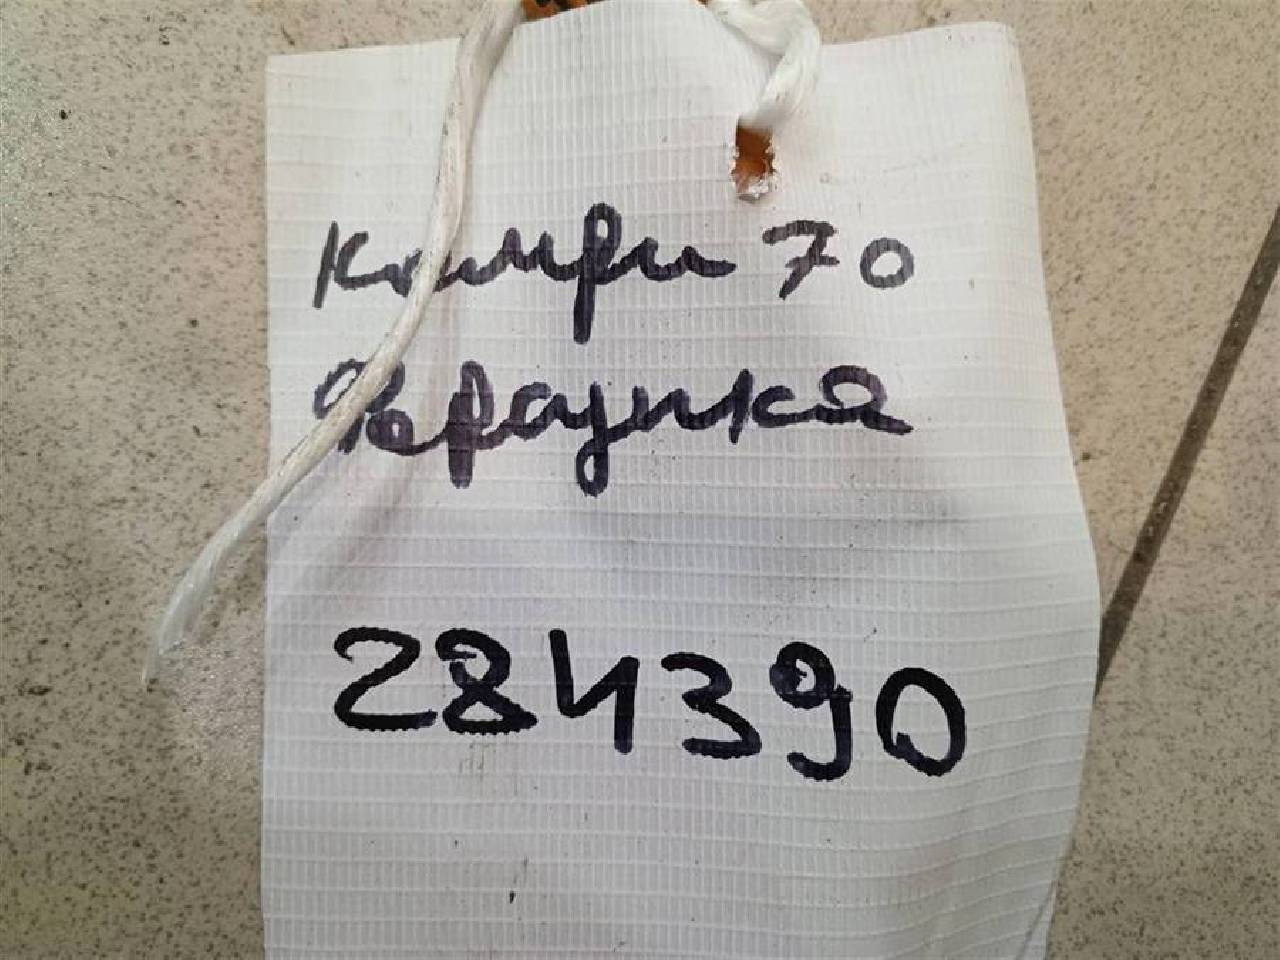 Камри 70
Фораункя
284390